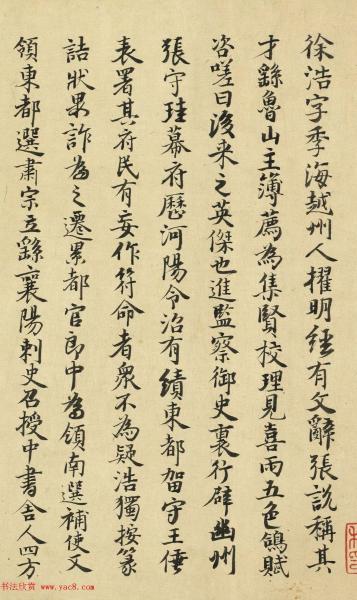 徐浩字季海越州人擢明經有文辭張說稱其
才繇魯山主簿薦為集賢校理見喜雨五色鴿賦
咨嗟曰後来之英傑也進監察御史裏行辟幽州
張守珪幕府歷河陽令治有績東都留守王倕
表署其府民有妄作符命者衆不為疑浩獨按篆
詰狀果詐為之遷累都官郎中為領南選補使又
領東都選肅宗立繇襄陽刺史召授中書舍人四方
书法欣赏 www.yac8.com